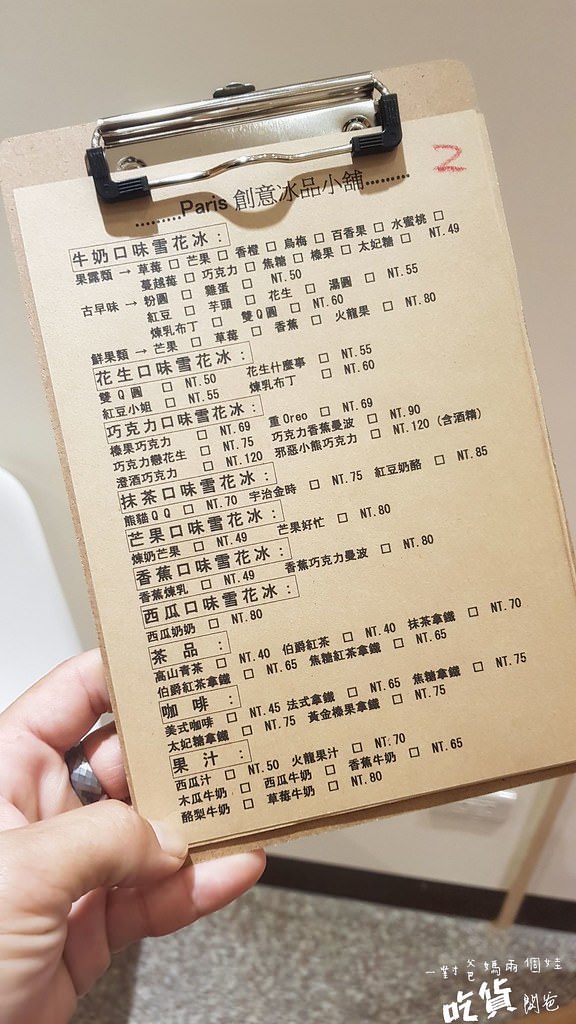 2
.........Paris 創意冰品小舖.........
牛奶口味雪花冰：
果露類 → 草莓 □ 芒果 □ 香橙 □ 烏梅 □ 百香果 □ 水蜜桃 □
蔓越莓 □ 巧克力 □ 焦糖 □ 榛果 □ 太妃糖 □ NT.49
古早味 → 粉圓 □ 雞蛋 □ NT.50
紅豆 □ 芋頭 □ 花生 □ 湯圓 □ NT.55
煉乳布丁 □ 雙Q圓 □ NT.60
鮮果類 → 芒果 □ 草莓 □ 香蕉 □ 火龍果 □ NT.80
花生口味雪花冰：
雙Q圓 □ NT.50 花生什麼事 □ NT.55
紅豆小姐 □ NT.55 煉乳布丁 □ NT.60
巧克力口味雪花冰：
榛果巧克力 □ NT.69 重Oreo □ NT.69
巧克力戀花生 □ NT.75 巧克力香蕉曼波 □ NT.90
澄酒巧克力 □ NT.120 邪惡小熊巧克力 □ NT.120 (含酒精)
抹茶口味雪花冰：
熊貓QQ □ NT.70 宇治金時 □ NT.75 紅豆奶酪 □ NT.85
芒果口味雪花冰：
煉奶芒果 □ NT.49 芒果好忙 □ NT.80
香蕉口味雪花冰：
香蕉煉乳 □ NT.49 香蕉巧克力曼波 □ NT.80
西瓜口味雪花冰：
西瓜奶奶 □ NT.80
茶品：
高山青茶 □ NT.40 伯爵紅茶 □ NT.40 抹茶拿鐵 □ NT.70
伯爵紅茶拿鐵 □ NT.65 焦糖紅茶拿鐵 □ NT.65
咖啡：
美式咖啡 □ NT.45 法式拿鐵 □ NT.65 焦糖拿鐵 □ NT.75
太妃糖拿鐵 □ NT.75 黃金榛果拿鐵 □ NT.75
果汁：
西瓜汁 □ NT.50 火龍果汁 □ NT.70
木瓜牛奶 □ 西瓜牛奶 □ 香蕉牛奶 □ NT.65
酪梨牛奶 □ 草莓牛奶 □ NT.80
一對爸媽兩個娃
吃貨 閎爸